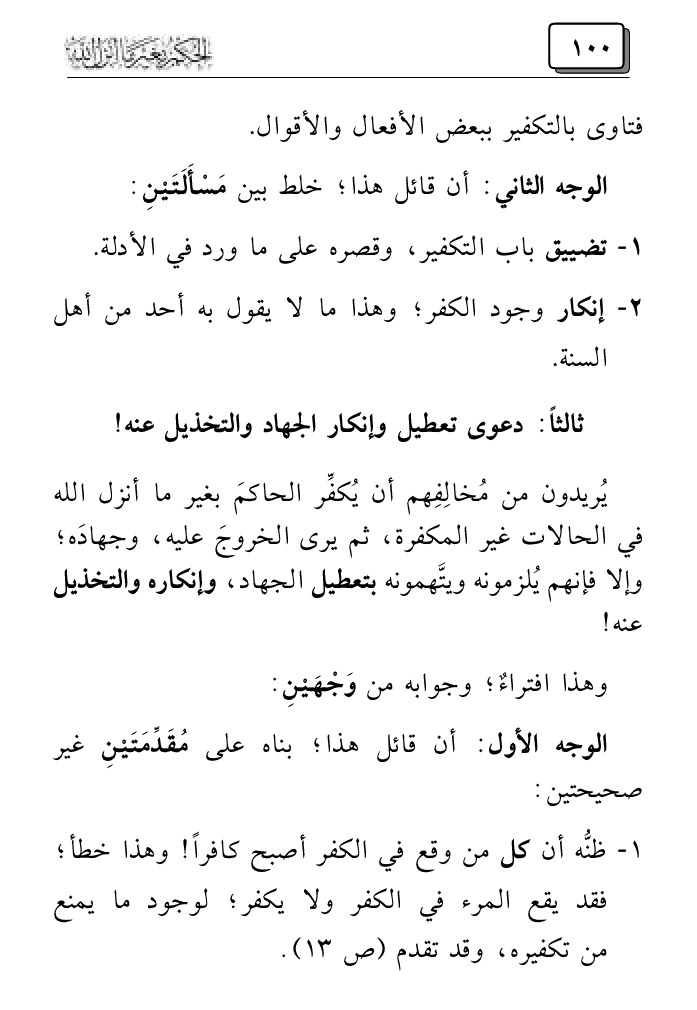 الحكم بغير ما أنزل الله
١٠٠
فتاوى بالتكفير ببعض الأفعال والأقوال.
الوجه الثاني: أن قائل هذا؛ خلط بين مَسْأَلَتَيْنِ:
١- تضييق باب التكفير، وقصره على ما ورد في الأدلة.
٢- إنكار وجود الكفر؛ وهذا ما لا يقول به أحد من أهل
السنة.
ثالثاً: دعوى تعطيل وإنكار الجهاد والتخذيل عنه!
يُريدون من مُخالِفِهم أن يُكفِّر الحاكمَ بغير ما أنزل الله
في الحالات غير المكفرة، ثم يرى الخروجَ عليه، وجهادَه؛
وإلا فإنهم يُلزمونه ويتَّهمونه بتعطيل الجهاد، وإنكاره والتخذيل
عنه!
وهذا افتراءٌ؛ وجوابه من وَجْهَيْنِ:
الوجه الأول: أن قائل هذا؛ بناه على مُقَدِّمَتَيْنِ غير
صحيحتين:
١- ظنُّه أن كل من وقع في الكفر أصبح كافراً! وهذا خطأ؛
فقد يقع المرء في الكفر ولا يكفر؛ لوجود ما يمنع
من تكفيره، وقد تقدم (ص ١٣).